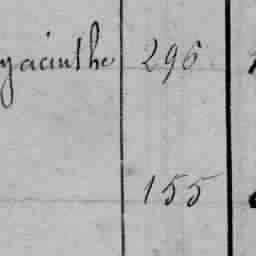 yacinthe 296
155